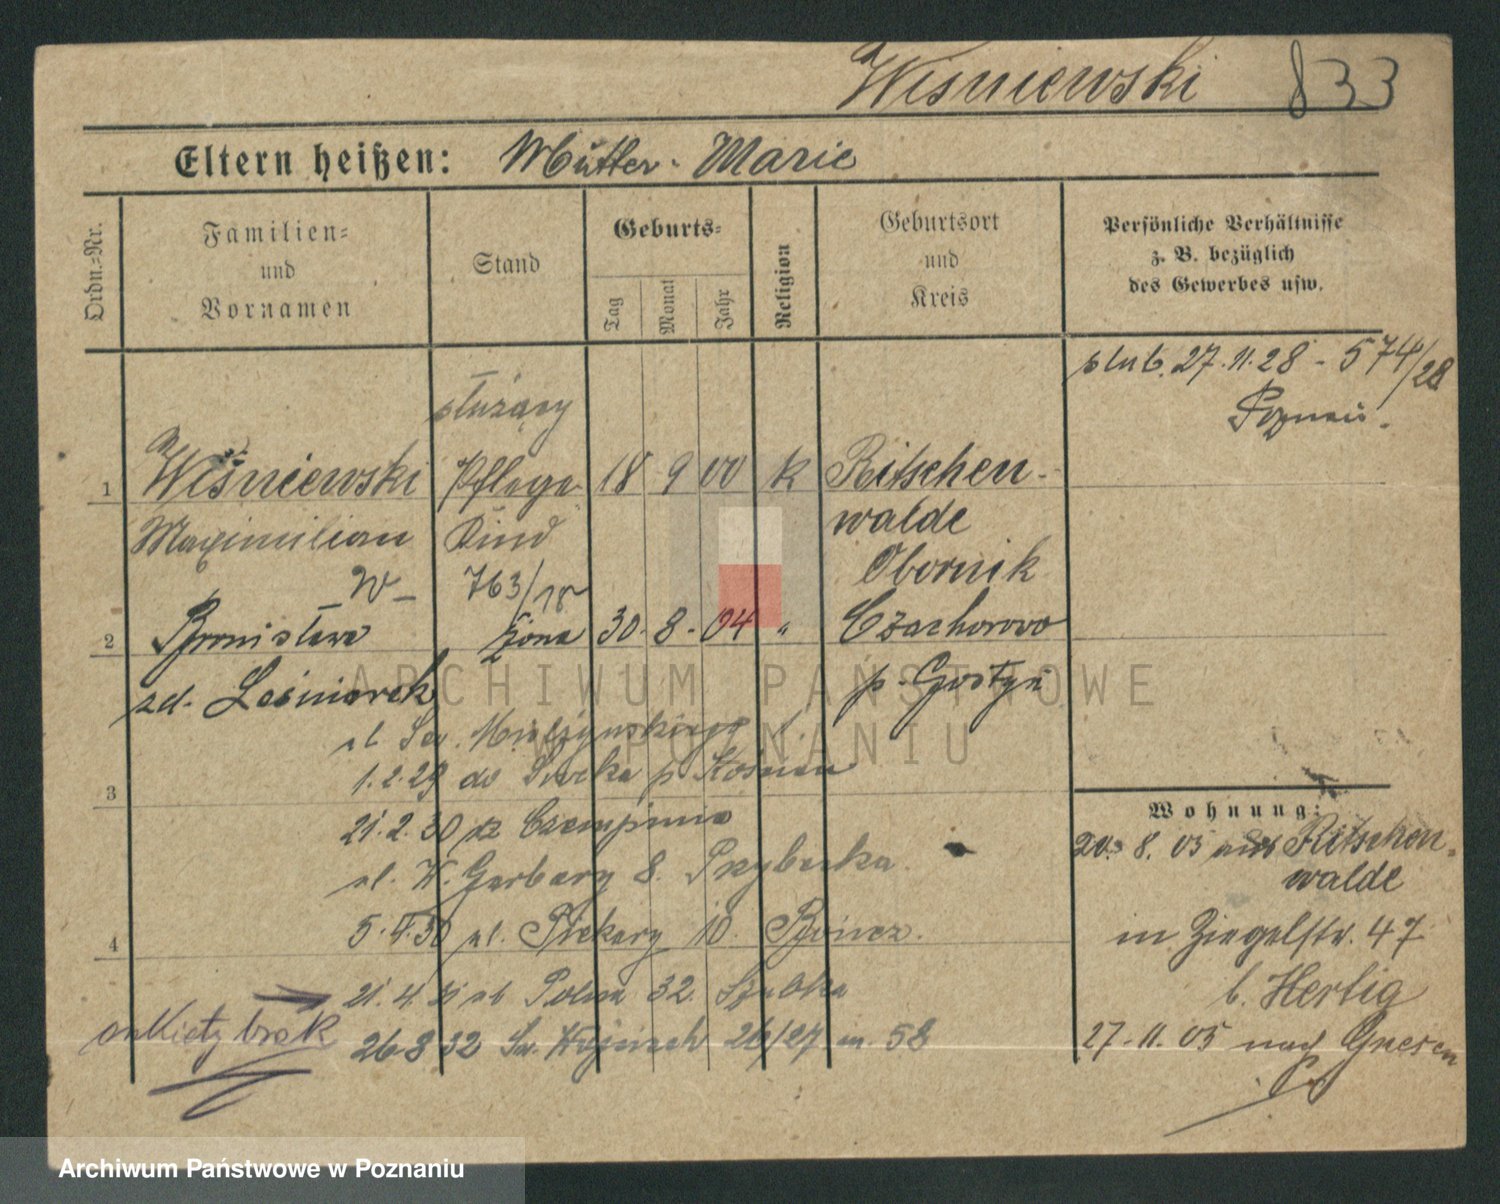 Wiśniewski 833
Eltern heißen: Mutter - Marie
Ordn.-Nr.
Familien-
und
Vornamen
Stand
Geburts-
Tag
Monat
Jahr
Religion
Geburtsort
und
Kreis
Persönliche Verhältnisse
z. B. bezüglich
des Gewerbes usw.
ślub. 27.11.28 - 574/28
Poznań.
służący
1 Wiśniewski Pflege- 18 9 00 k Ritschen-
Maximilian Kind walde
W- 763/18 Obornik
2 Bronisława żona 30. 8. 04 " Czachorowo
zd. Leśniarek p. Gostyń
ARCHIWUM PAŃSTWOWE
W POZNANIU
ul. Sew. Mielżyńskiego
1.2.29 do
3
21.2.30 z Czempinia
ul. W. Garbary 8. Przybecka
4
5.4.30 ul. Piekary 10.
21.4. ul Polna 32.
26 8 32 Św. Wojciech 26/27 m. 58
ankiety brak
Wohnung:
20. 8. 05 aus Ritschen-
walde
in Ziegelstr. 47
b. Hertig
27.11.05 nach Gnesen
Archiwum Państwowe w Poznaniu